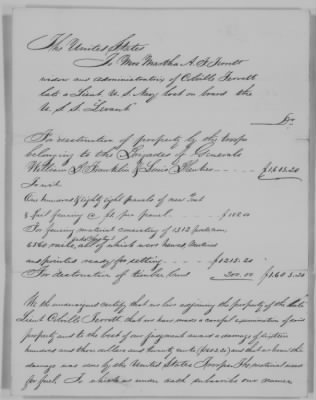 The United States
To Mrs Martha A. F. Terrett
widow and administratrix of Colville Terrett
late a Lieut U. S. Navy lost on board the
U. S. S. "Levant"
Dr.
For destruction of property by the troops
belonging to the Brigades of Generals
William B. Franklin & Louis Blenker $1,603.20
To wit
One hundred & Eighty eight panels of new Post
& rail fencing @ pr. panel
For fencing material consisting of 1312 posts and
rails, all of which were hewn,
and posts ready for setting $1215.20
For destruction of timber land 200.00 $1,603.20
We the undersigned certify, that we live adjoining the property of the "late"
Lieut Colville Terrett that we have made a careful examination of said
property and to the best of our judgment award a damage of sixteen
hundred and three dollars and twenty cents ($1603.20) and that we know the
damage was done by the United States Troops. The material used
for fuel. To which as under each subscribe our names